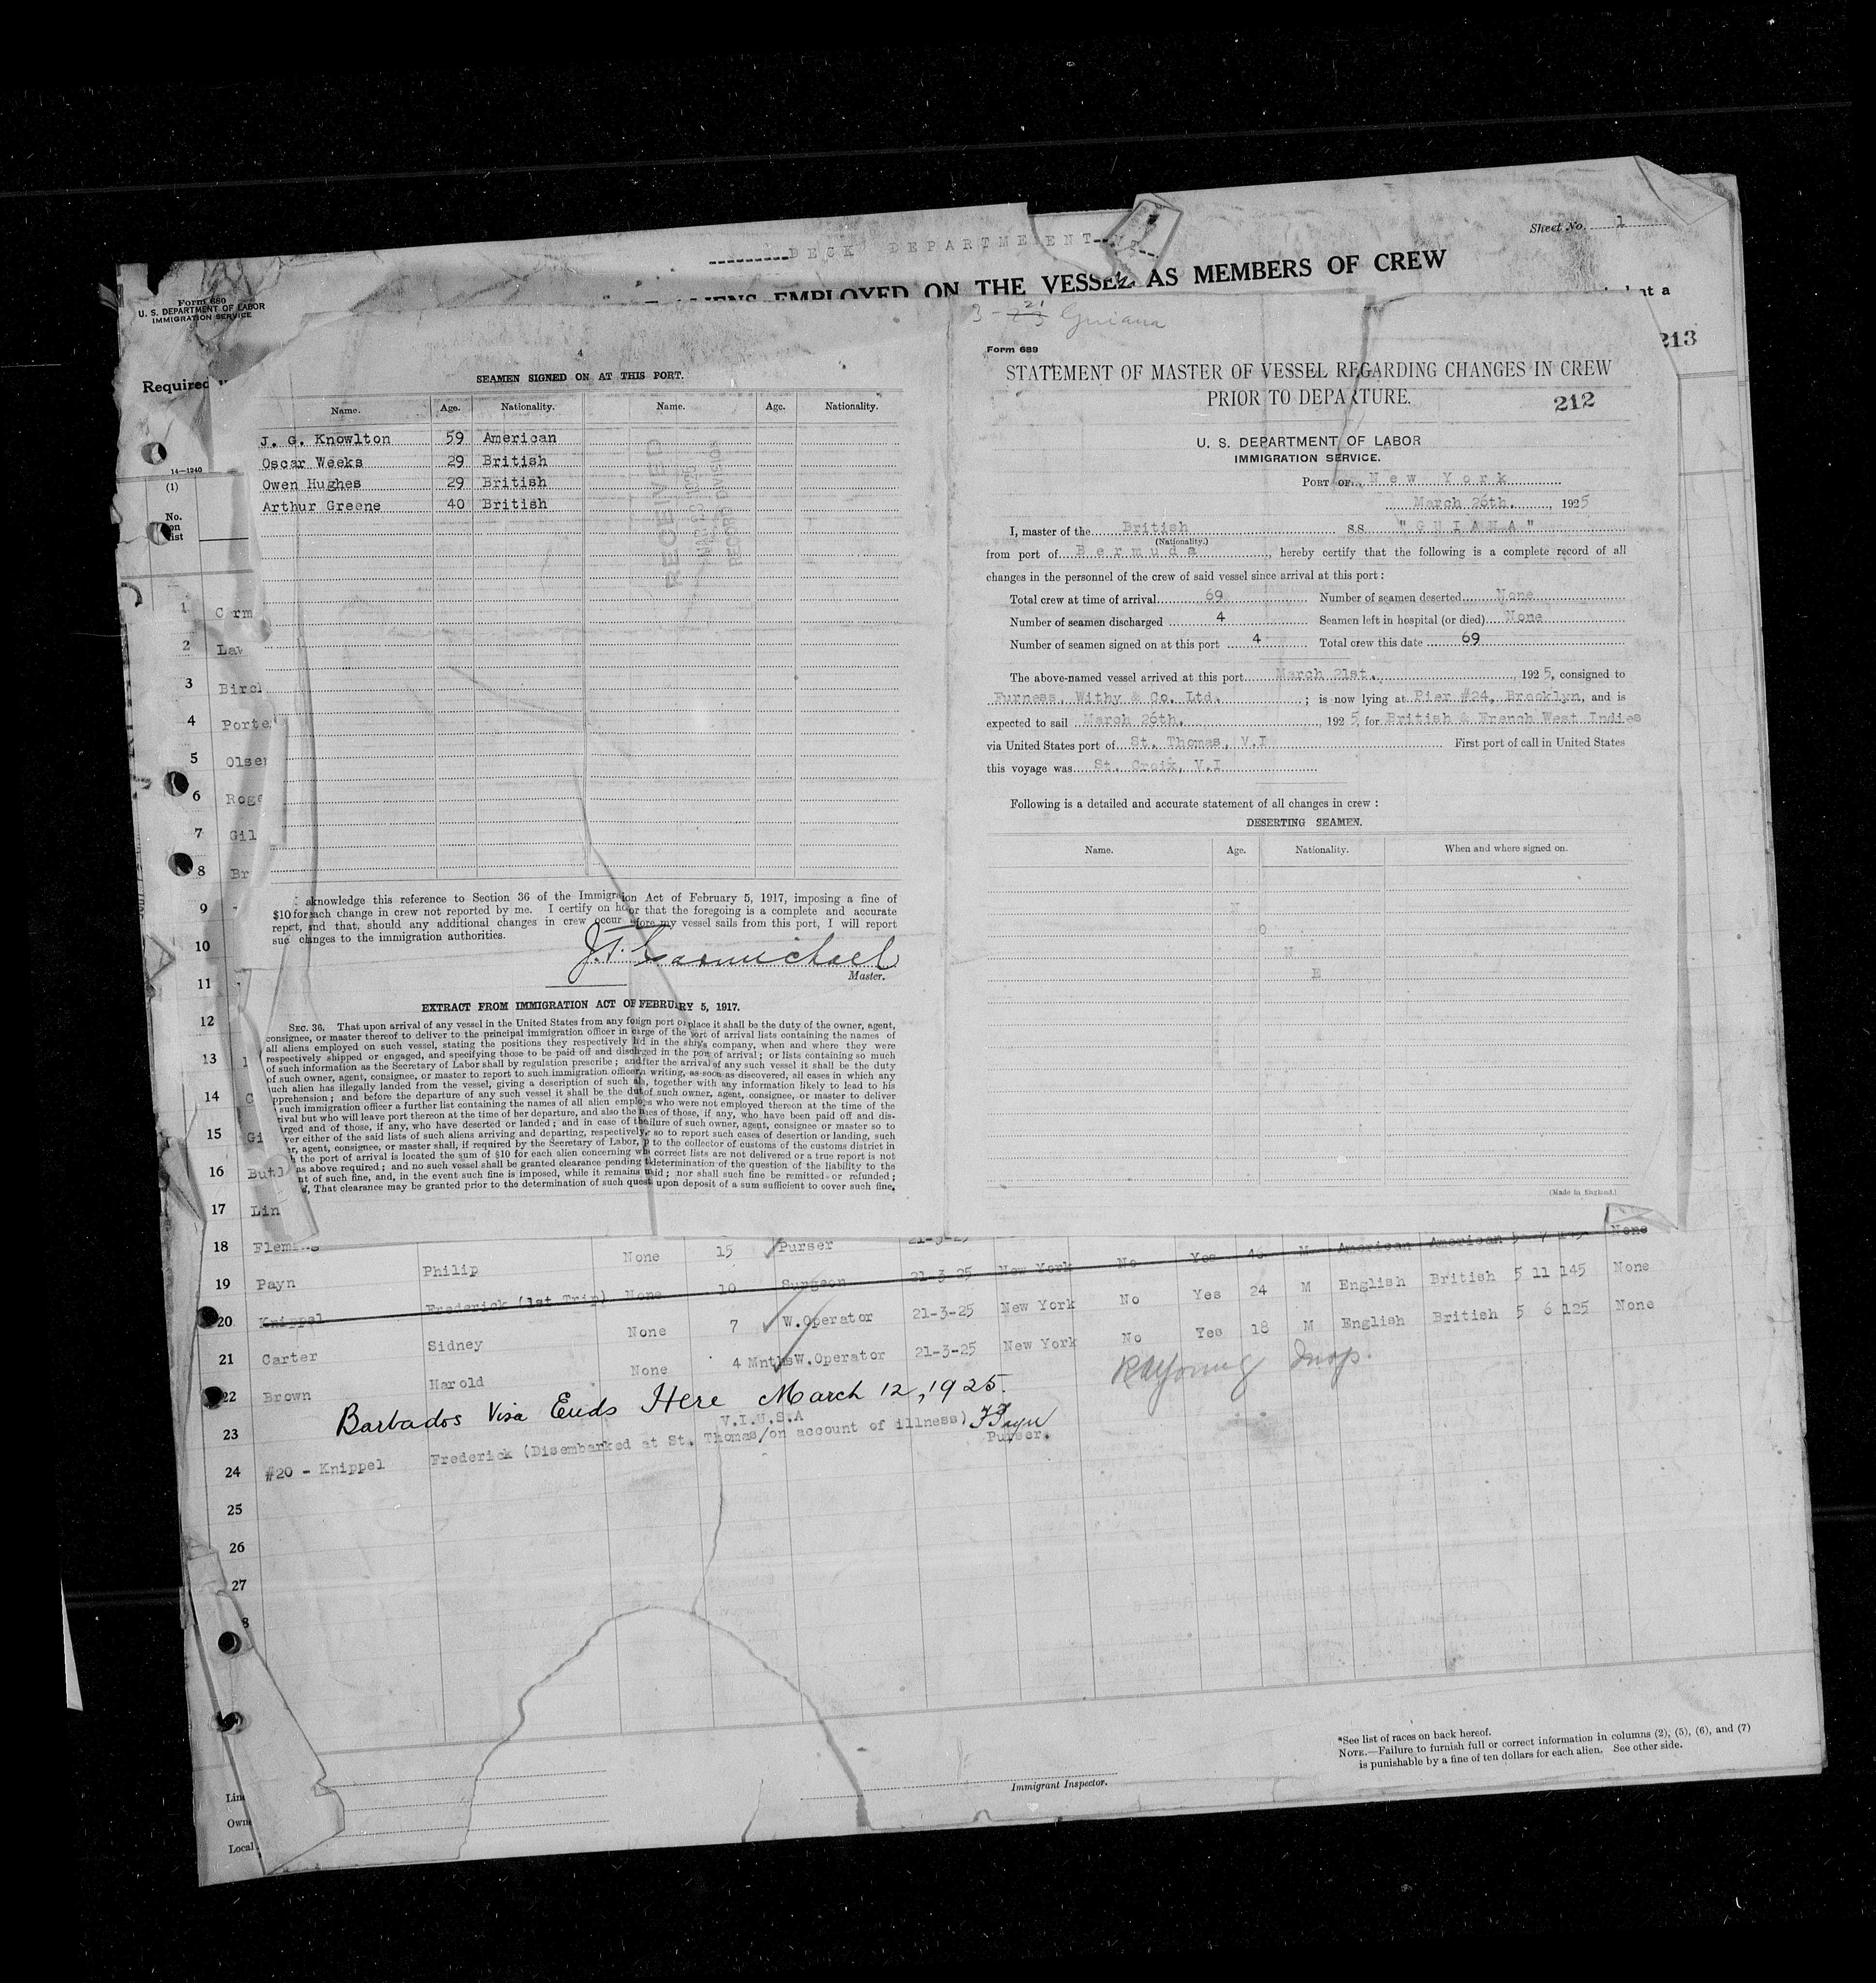 DECK DEPARTMENT
Sheet No. 1
ALIENS EMPLOYED ON THE VESSEL AS MEMBERS OF CREW
Form 680
U. S. DEPARTMENT OF LABOR
IMMIGRATION SERVICE
Required
213
14—1240
(1)
No.
on
list
4
SEAMEN SIGNED ON AT THIS PORT.
Name. Age. Nationality. Name. Age. Nationality.
J. G. Knowlton 59 American
Oscar Weeks 29 British
Owen Hughes 29 British
Arthur Greene 40 British
RECEIVED
RECORD DIVISION
I aknowledge this reference to Section 36 of the Immigration Act of February 5, 1917, imposing a fine of
$10 for each change in crew not reported by me. I certify on honor that the foregoing is a complete and accurate
report, and that, should any additional changes in crew occur before my vessel sails from this port, I will report
such changes to the immigration authorities.
J. T. Carmichael
Master.
EXTRACT FROM IMMIGRATION ACT OF FEBRUARY 5, 1917.
SEC. 36. That upon arrival of any vessel in the United States from any foreign port or place it shall be the duty of the owner, agent,
consignee, or master thereof to deliver to the principal immigration officer in charge of the port of arrival lists containing the names of
all aliens employed on such vessel, stating the positions they respectively hold in the ship's company, when and where they were
respectively shipped or engaged, and specifying those to be paid off and discharged in the port of arrival; or lists containing so much
of such information as the Secretary of Labor shall by regulation prescribe; and after the arrival of any such vessel it shall be the duty
of such owner, agent, consignee, or master to report to such immigration officer, in writing, as soon as discovered, all cases in which any
such alien has illegally landed from the vessel, giving a description of such alien, together with any information likely to lead to his
apprehension; and before the departure of any such vessel it shall be the duty of such owner, agent, consignee, or master to deliver
such immigration officer a further list containing the names of all alien employees who were not employed thereon at the time of the
arrival but who will leave port thereon at the time of her departure, and also the names of those, if any, who have been paid off and dis-
charged and of those, if any, who have deserted or landed; and in case of the failure of such owner, agent, consignee or master so to
deliver either of the said lists of such aliens arriving and departing, respectively, or so to report such cases of desertion or landing, such
owner, agent, consignee, or master shall, if required by the Secretary of Labor, pay to the collector of customs of the customs district in
which the port of arrival is located the sum of $10 for each alien concerning whom correct lists are not delivered or a true report is not
as above required; and no such vessel shall be granted clearance pending the determination of the question of the liability to the
payment of such fine, and, in the event such fine is imposed, while it remains unpaid; nor shall such fine be remitted or refunded;
That clearance may be granted prior to the determination of such question upon deposit of a sum sufficient to cover such fine.
3-21 Guiana
Form 689
STATEMENT OF MASTER OF VESSEL REGARDING CHANGES IN CREW
PRIOR TO DEPARTURE.
212
U. S. DEPARTMENT OF LABOR
IMMIGRATION SERVICE.
PORT OF New York
March 26th., 1925
I, master of the British S.S. "GUIANA"
(Nationality.)
from port of Bermuda, hereby certify that the following is a complete record of all
changes in the personnel of the crew of said vessel since arrival at this port:
Total crew at time of arrival 69 Number of seamen deserted None
Number of seamen discharged 4 Seamen left in hospital (or died) None
Number of seamen signed on at this port 4 Total crew this date 69
The above-named vessel arrived at this port March 21st., 1925, consigned to
Furness, Withy & Co. Ltd.; is now lying at Pier #24, Brooklyn, and is
expected to sail March 26th., 1925 for British & French West Indies
via United States port of St. Thomas, V.I First port of call in United States
this voyage was St. Croix, V.I
Following is a detailed and accurate statement of all changes in crew:
DESERTING SEAMEN.
Name. Age. Nationality. When and where signed on.
N
O
N
E
(Made in England.)
1 Carm
2 Law
3 Birch
4 Porte
5 Olsen
6 Roge
7 Gil
8 Br
9
10
11
12
13
14 C
15 Gi
16 Butl
17 Lin
18 Fleming
19 Payn Philip None 15 Purser 21-3-25
20 Knippel Frederick (1st Trip) None 10 Surgeon 21-3-25 New York No Yes 46 M American American 5 7 None
21 Carter Sidney None 7 W.Operator 21-3-25 New York No Yes 24 M English British 5 11 145 None
22 Brown Harold None 4 Mnths W.Operator 21-3-25 New York No Yes 18 M English British 5 6 125 None
Barbados Visa Ends Here March 12, 1925.
RA Young Insp.
23
V.I.U.S.A
24 #20 - Knippel Frederick (Disembarked at St. Thomas/on account of illness) Payn
Purser.
25
26
27
8
*See list of races on back hereof.
NOTE.—Failure to furnish full or correct information in columns (2), (5), (6), and (7)
is punishable by a fine of ten dollars for each alien. See other side.
Immigrant Inspector.
Line
Own
Local